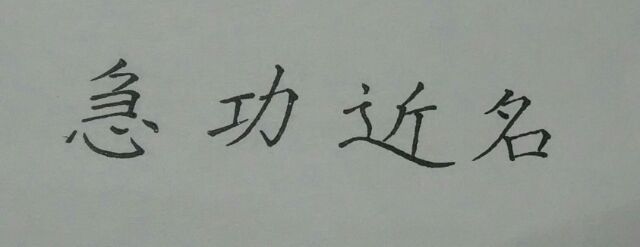 急功近名